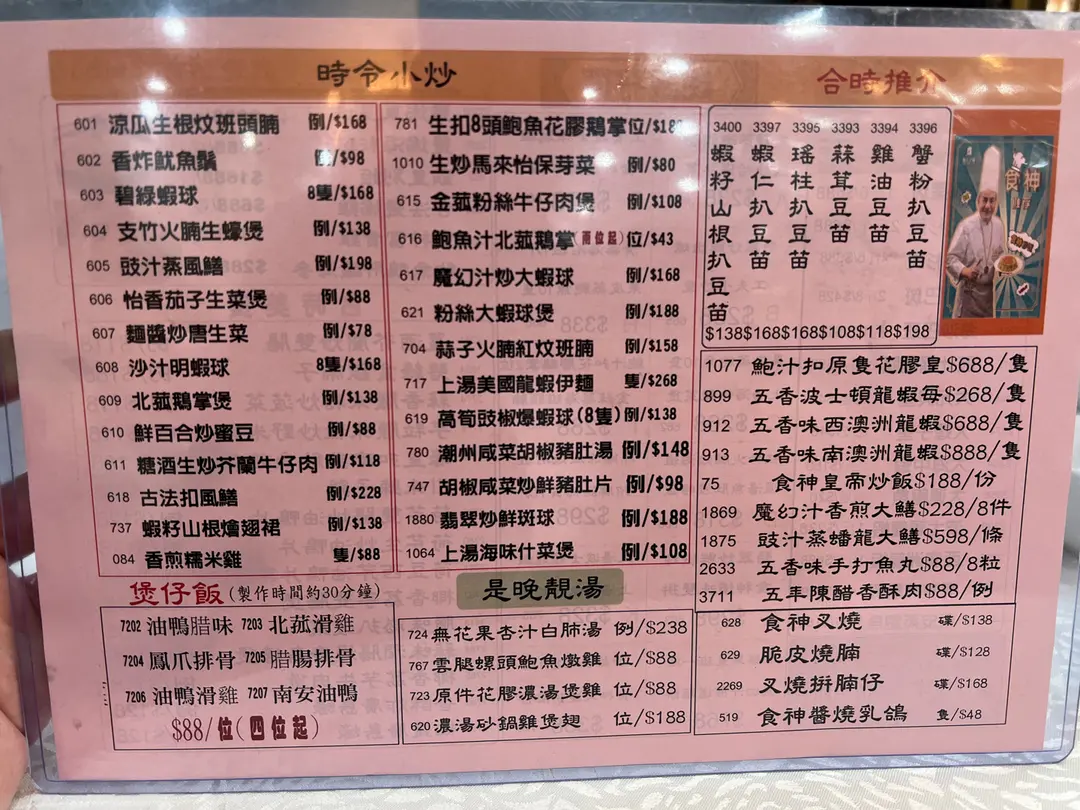 時令小炒
601 涼瓜生根炆班頭腩 例/$168
602 香炸魷魚鬚 例/$98
603 碧綠蝦球 8隻/$168
604 支竹火腩生蠔煲 例/$138
605 豉汁蒸風鱔 例/$198
606 怡香茄子生菜煲 例/$88
607 麵醬炒唐生菜 例/$78
608 沙汁明蝦球 8隻/$168
609 北菰鵝掌煲 例/$138
610 鮮百合炒蜜豆 例/$88
611 糖酒生炒芥蘭牛仔肉 例/$118
618 古法扣風鱔 例/$228
737 蝦籽山根燴翅裙 例/$138
084 香煎糯米雞 隻/$88
781 生扣8頭鮑魚花膠鵝掌 位/
1010 生炒馬來怡保芽菜 例/$80
615 金菰粉絲牛仔肉煲 例/$108
616 鮑魚汁北菰鵝掌(兩位起) 位/$43
617 魔幻汁炒大蝦球 例/$168
621 粉絲大蝦球煲 例/$188
704 蒜子火腩紅炆班腩 例/$158
717 上湯美國龍蝦伊麵 隻/$268
619 萬筍豉椒爆蝦球(8隻) 例/$138
780 潮州咸菜胡椒豬肚湯 例/$148
747 胡椒咸菜炒鮮豬肚片 例/$98
1880 翡翠炒鮮斑球 例/$188
1064 上湯海味什菜煲 例/$108
合時推介
3400 3397 3395 3393 3394 3396
蝦籽山根扒豆苗
蝦仁扒豆苗
瑤柱扒豆苗
蒜茸豆苗
雞油豆苗
蟹粉扒豆苗
$138 $168 $168 $108 $118 $198
食神
1077 鮑汁扣原隻花膠皇$688/隻
899 五香波士頓龍蝦每$268/隻
912 五香味西澳洲龍蝦$688/隻
913 五香味南澳洲龍蝦$888/隻
75 食神皇帝炒飯$188/份
1869 魔幻汁香煎大鱔$228/8件
1875 豉汁蒸蟠龍大鱔$598/條
2633 五香味手打魚丸$88/8粒
3711 五年陳醋香酥肉$88/例
煲仔飯(製作時間約30分鐘)
7202 油鴨腊味 7203 北菰滑雞
7204 鳳爪排骨 7205 腊腸排骨
7206 油鴨滑雞 7207 南安油鴨
$88/位(四位起)
是晚靚湯
724 無花果杏汁白肺湯 例/$238
767 雲腿螺頭鮑魚燉雞 位/$88
723 原件花膠濃湯煲雞 位/$88
620 濃湯砂鍋雞煲翅 位/$188
628 食神叉燒 碟/$138
629 脆皮燒腩 碟/$128
2269 叉燒拼腩仔 碟/$168
519 食神醬燒乳鴿 隻/$48